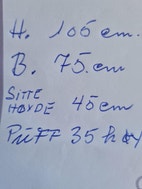 H. 105 cm.
B. 75. cm
SITTE
HØYDE 45 cm
PUFF 35 høy